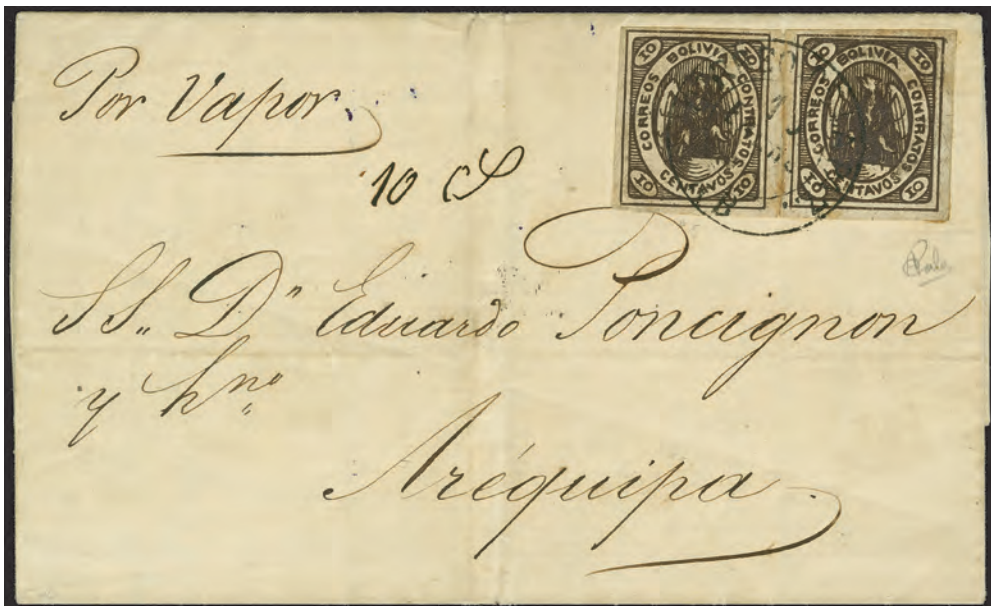 Por Vapor
10 CORREOS BOLIVIA CONTRATOS 10
10 CENTAVOS 10
10 CORREOS BOLIVIA CONTRATOS 10
10 CENTAVOS 10
10
SS. Dn Eduardo Poncignon
y hno
Aréquipa